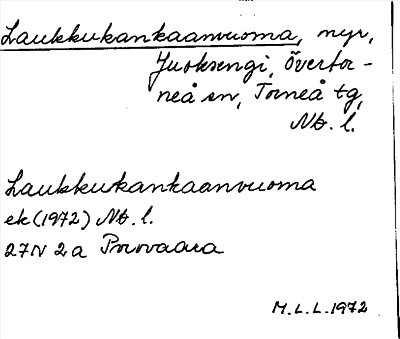 Laukkukankaanvuoma, myr,
Juoksengi, Övertor-
neå sn, Torneå tg,
Nb. l.
Laukkukankaanvuoma
ek (1972) Nb. l.
27N 2a Porovaara
M.L.L. 1972